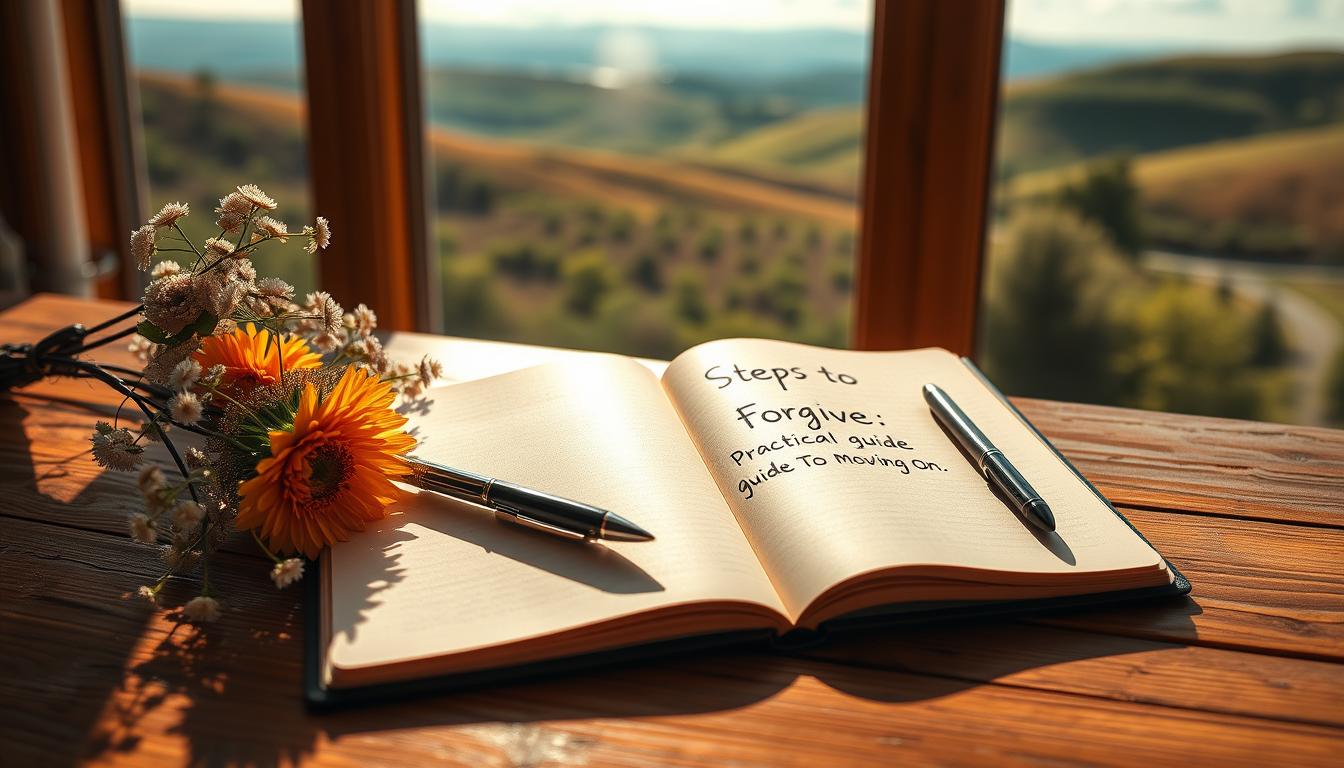 Steps to
Forgive:
Practical guide
guide To Moving On.